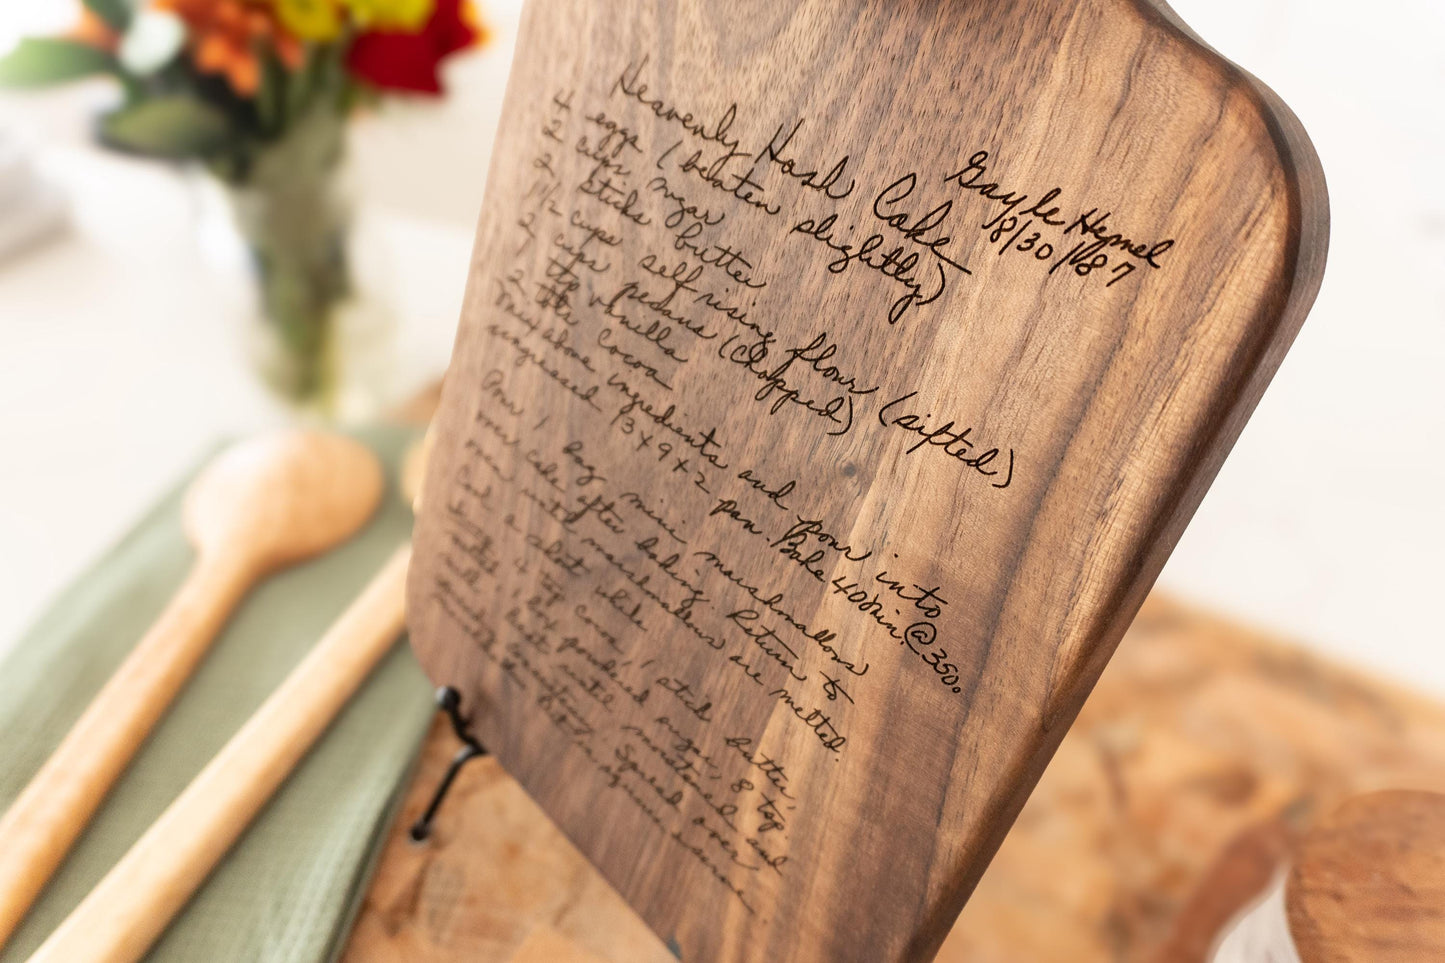 Heavenly Hash Cake
Gayle Hymel
8/30/87
4 eggs (beaten slightly)
2 cups sugar
2 sticks butter
1 1/2 cups self rising flour (sifted)
2 cups pecans (chopped)
2 vanilla
2 cocoa
Mix above ingredients and pour into
ungreased 13x9x2 pan. Bake 40 min. @ 350°.
Pour 1 bag mini marshmallows
over cake after baking. Return to
oven until marshmallows are melted.
Cool a short while.
4 1 stick butter,
powdered sugar, 8 tsp
milk. Beat until moistened and
Spread over